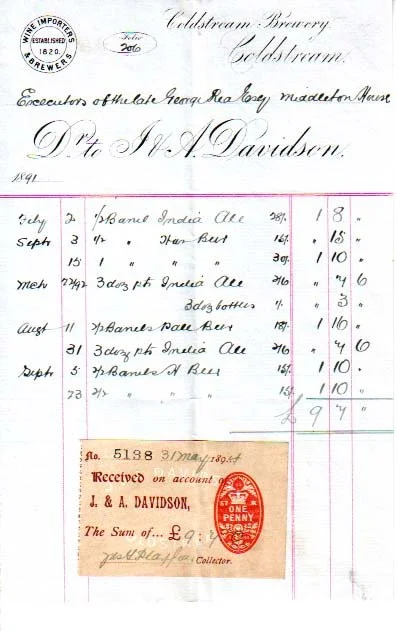 WINE IMPORTERS & BREWERS
ESTABLISHED 1820.
Folio 206
Coldstream Brewery.
Coldstream.
Executors of the late George Rea Esqy Middleton House
Dr. to J & A. Davidson.
1891
July 2 1/2 Barrel India Ale 28/. 1 8 "
Septr 3 1/2 " Har Beer " 15 "
15 1 " " " 30/. 1 10 "
3 doz pts India Ale 2/6 " 7 6
3 doz bottles 1/. " 3 "
Augt 11 2/2 Barrels Pale Beer 18/. 1 16 "
31 3 doz pts India Ale 2/6 " 7 6
Septr 5 2/2 Barrels H Beer 15/. 1 10 "
23 2/2 " " " 15/. 1 10 "
£ 9 7 "
No. 5138 31 May 1894
Received on account of
J. & A. DAVIDSON,
The Sum of... £ 9 : 7
Collector.
ONE PENNY